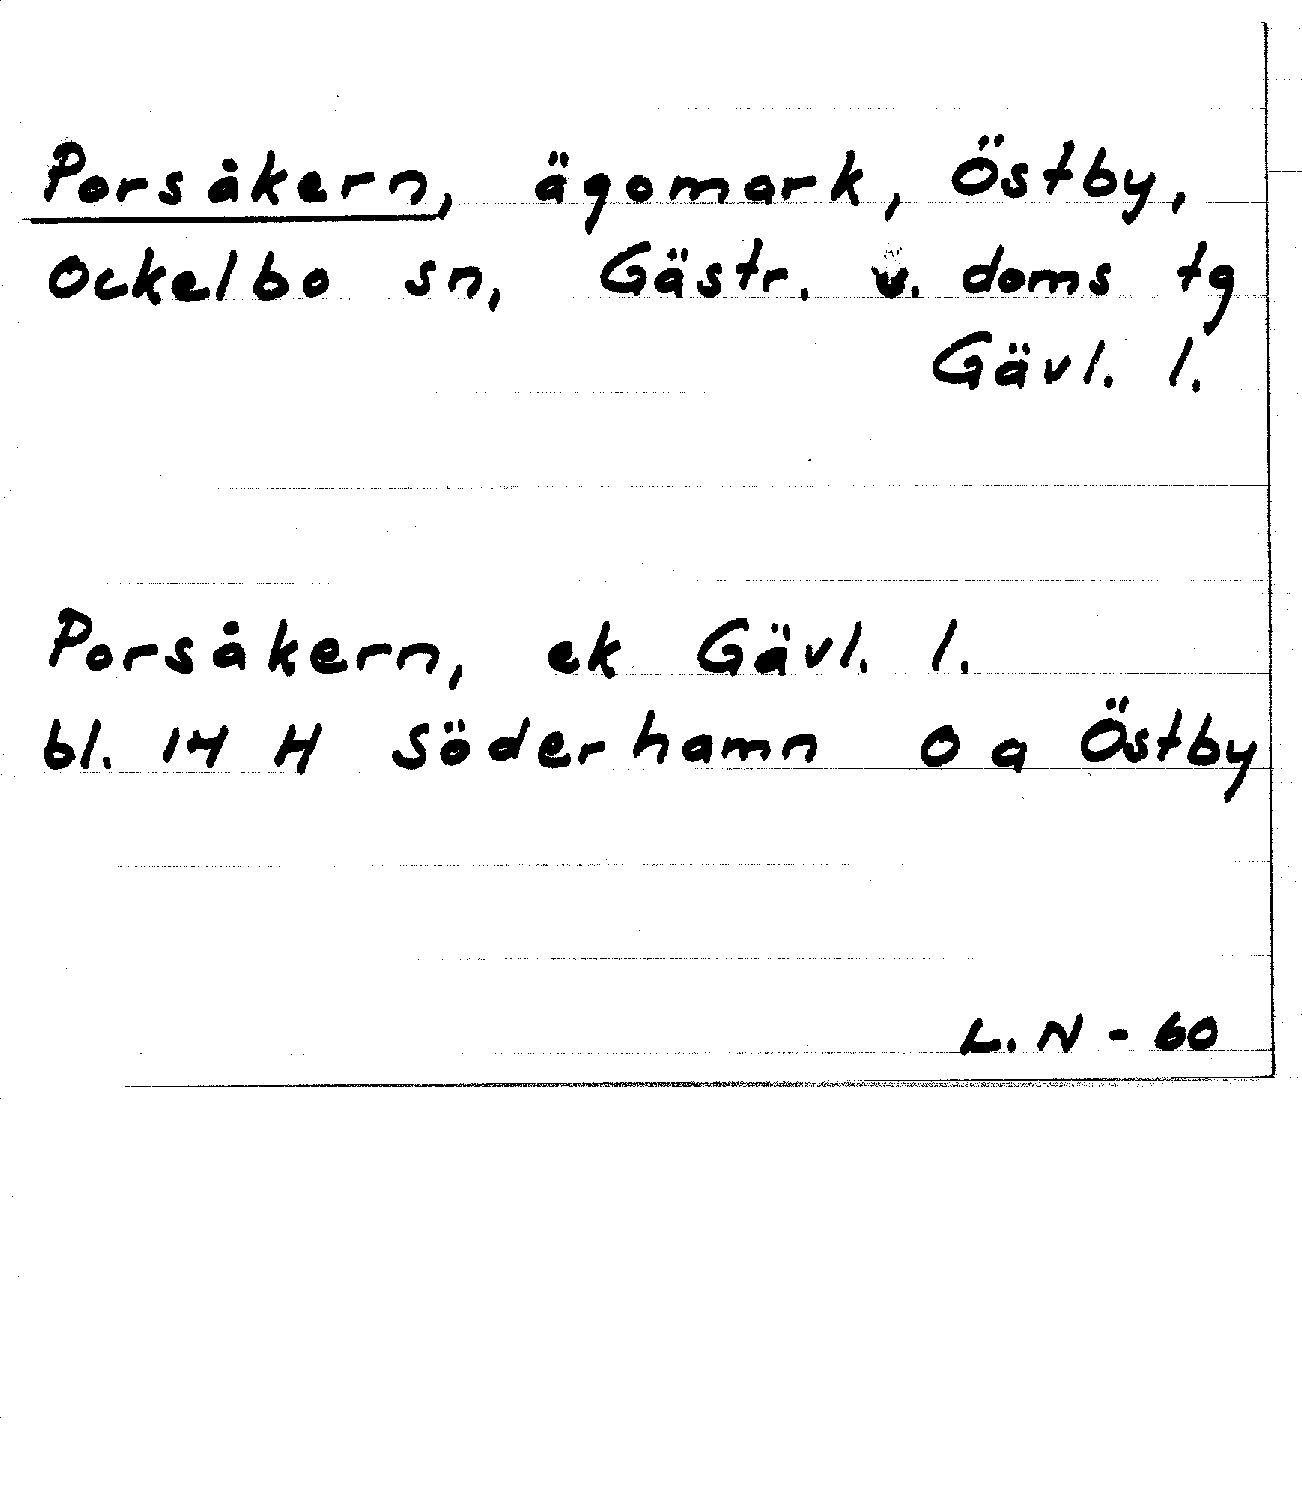 Porsåkern, ägomark, Östby,
Ockelbo sn, Gästr. v. doms tg
Gävl. l.
Porsåkern, ek Gävl. l.
bl. 14 H Söderhamn O a Östby
L. N - 60